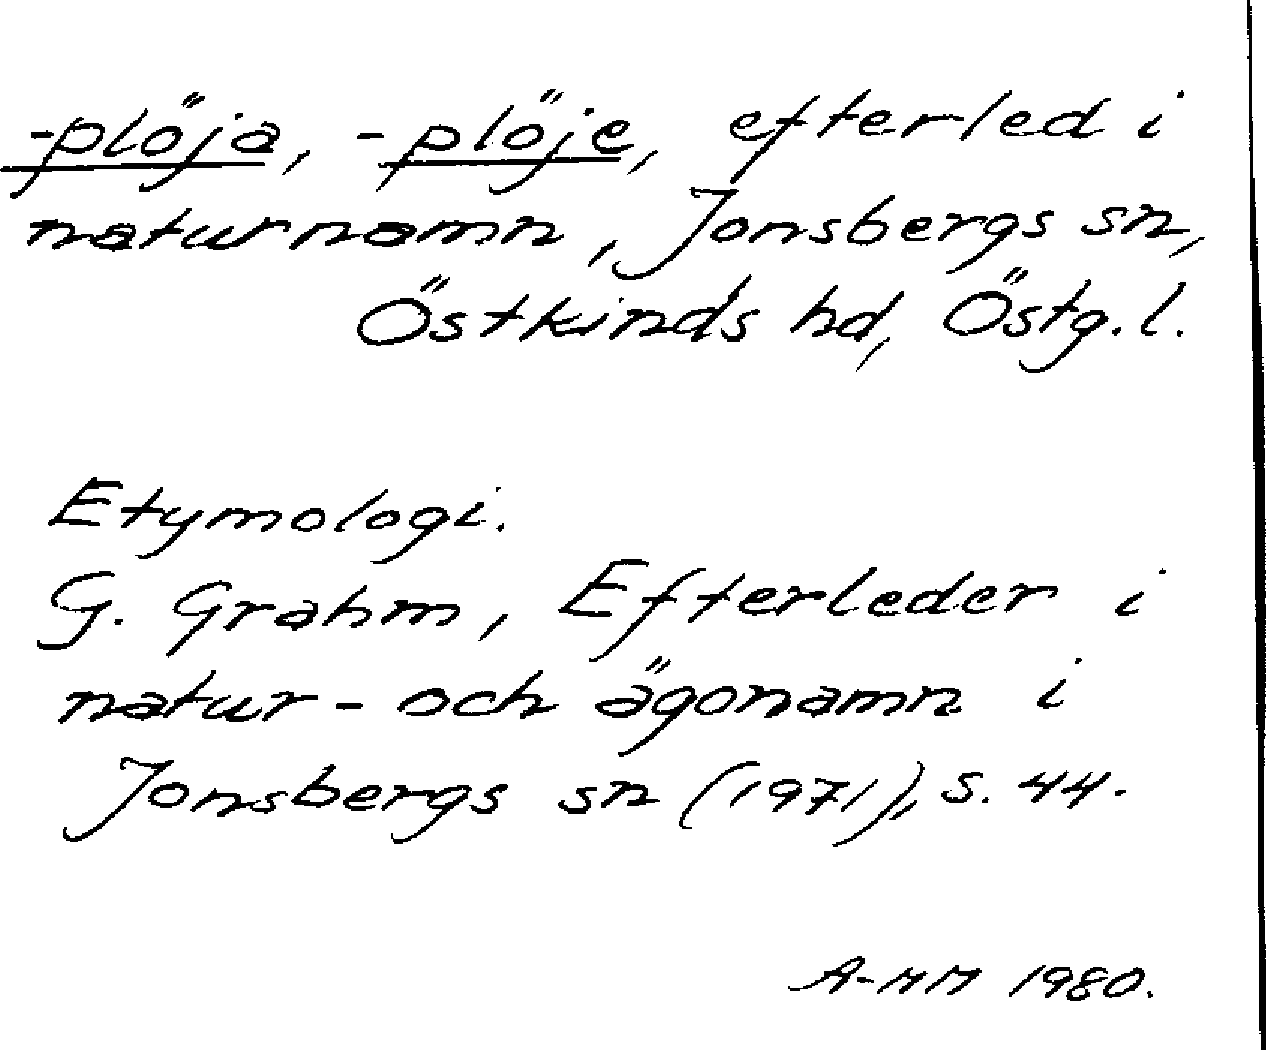 -plöja, -plöje, efterled i
naturnamn, Jonsbergs sn,
Östkinds hd, Östg.l.
Etymologi.
G. Grahm, Efterleder i
natur- och ägonamn i
Jonsbergs sn (1971), s. 44.
A-MM 1980.